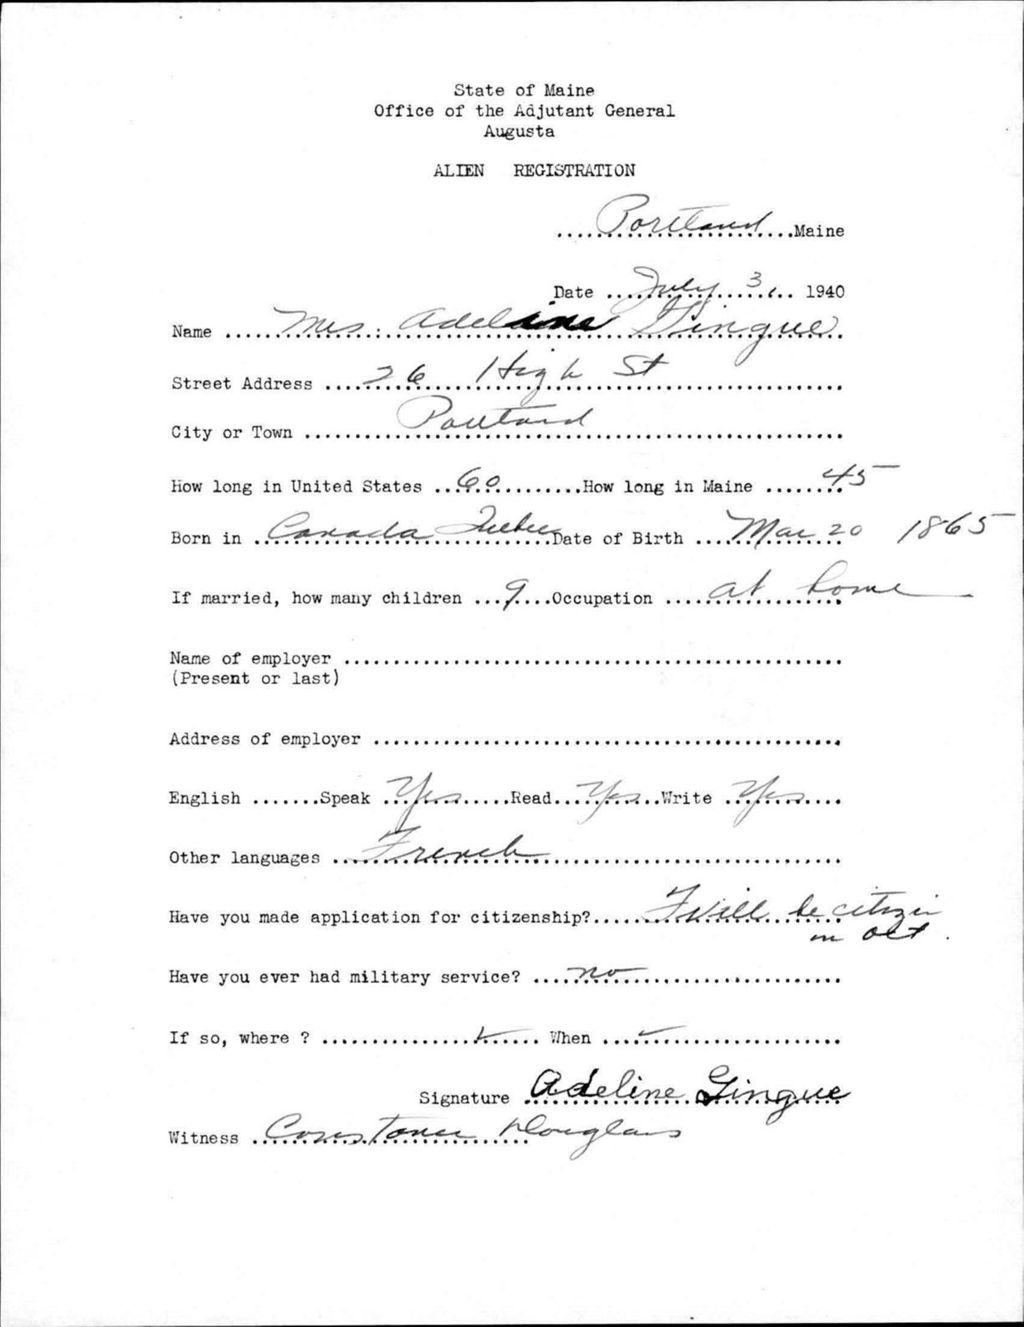 State of Maine
Office of the Adjutant General
Augusta
ALIEN REGISTRATION
Portland Maine
Date July 3, 1940
Name Mrs. Adeline Gingue
Street Address 26 High St
City or Town Portland
How long in United States 60 How long in Maine 45
Born in Canada Quebec Date of Birth Mar 20 1865
If married, how many children 9 Occupation at home
Name of employer
(Present or last)
Address of employer
English Speak Yes Read Yes Write Yes
Other languages French
Have you made application for citizenship? I will be citizen
in Oct.
Have you ever had military service? no
If so, where ? When
Signature Adeline Gingue
Witness Constance Douglass